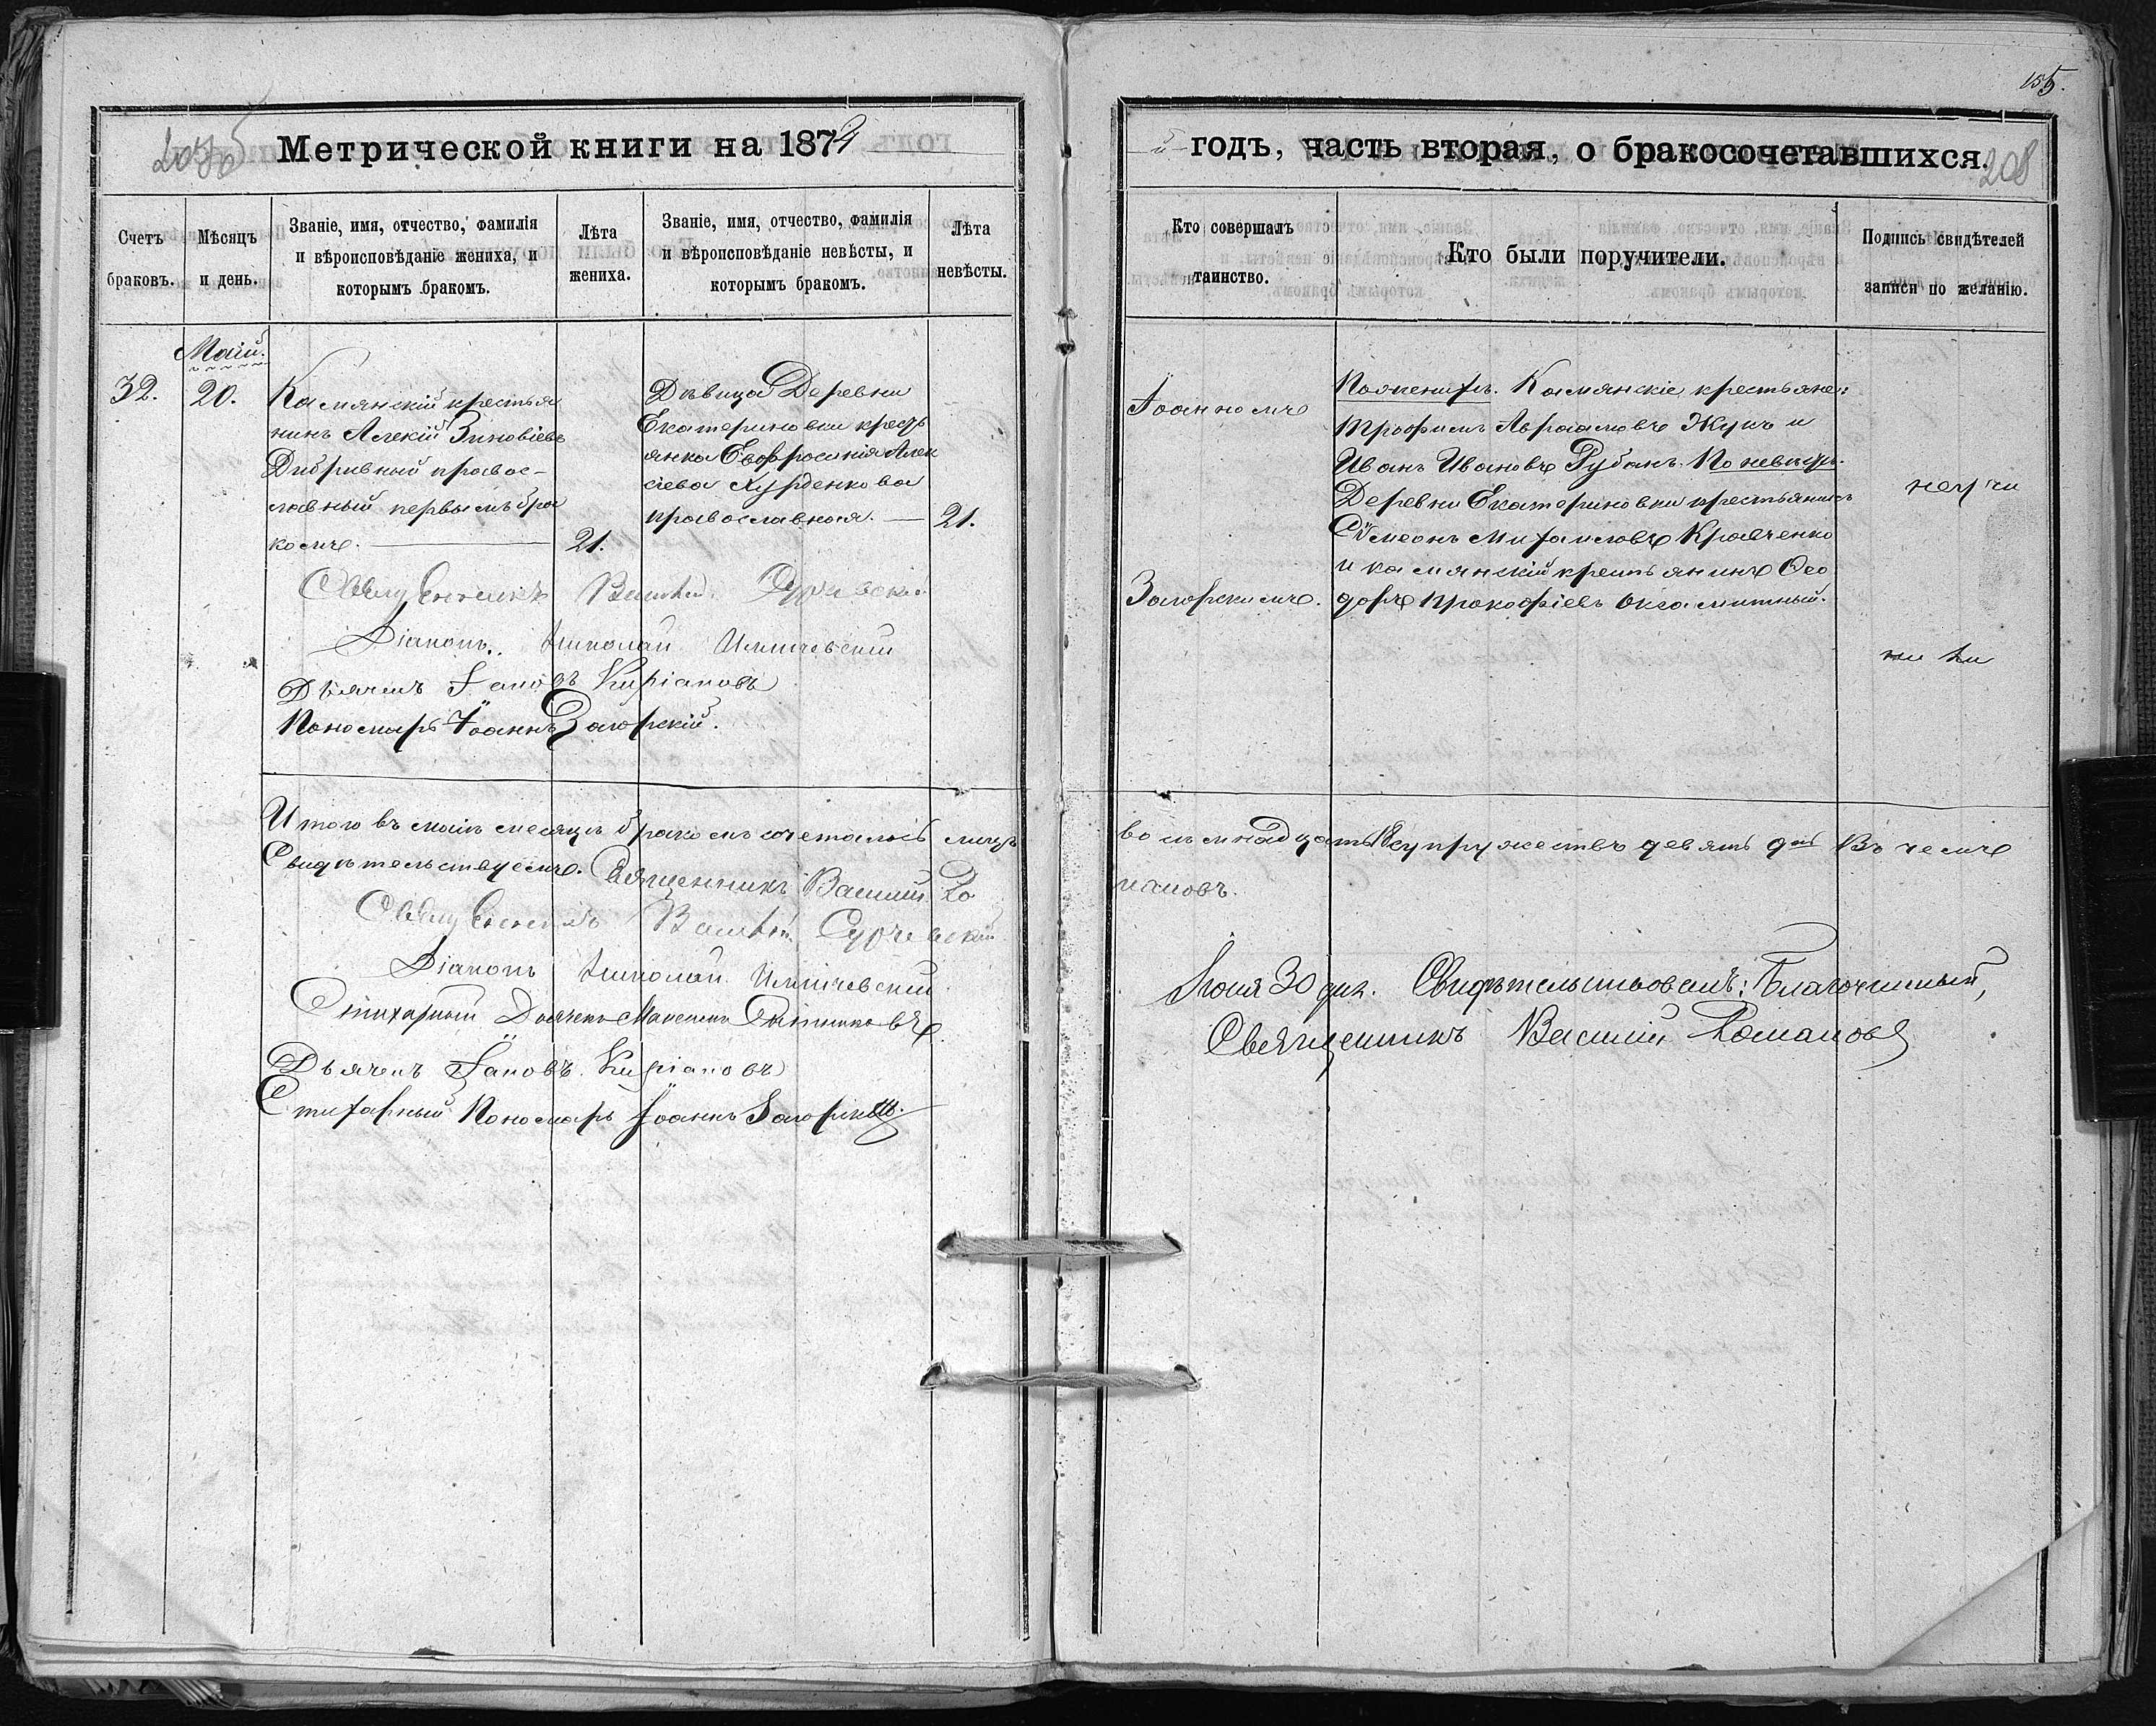 155.
Метрической книги на 1872
й годъ, часть вторая, о бракосочетавшихся.
208
Счетъ браковъ.
Мѣсяцъ и день.
Званіе, имя, отчество, фамилія
и вѣроисповѣданіе жениха, и
которымъ бракомъ.
Лѣта
жениха.
Званіе, имя, отчество, фамилія
и вѣроисповѣданіе невѣсты, и
которымъ бракомъ.
Лѣта
невѣсты.
Кто совершалъ
таинство.
Кто были поручители.
Подпись свидѣтелей
записи по желанію.
Май.
32.
20.
Камянскій крестья
нинъ Алекій Зиновіевъ
Дибривный правос-
лавный первымъ бра
комъ.
21.
Дѣвица Деревни
Екатериновки крест
янка Евфросинія Алек
сіева Курденкова
православная.
21.
Іоанномъ
Загорскимъ.
По женихѣ. Камянскіе крестьяне:
Трофимъ Авраамовъ Жукъ и
Иванъ Ивановъ Рубанъ. По невѣстѣ.
Деревни Екатериновки крестьянинъ
Сѵмеонъ Михаиловъ Кравченко
и камянскій крестьянинъ Фео
доръ Прокофіевъ Оксамитный.
Священникъ Василій
Діаконъ Николай
Дьячекъ Іаковъ Кипріановъ
Пономарь Іоаннъ Загорскій.
Итого въ маѣ месяцѣ бракомъ сочеталось лицъ восьмнадцать супружествъ девять Въ чемъ
Свидѣтельствуемъ. Священникъ Василій Романовъ.
Священникъ Василій
Діаконъ Николай
Стихарный Дьячекъ Максимъ
Дьячекъ Іаковъ Кипріановъ
Стихарный Пономарь Іоаннъ Загорскій.
Іюня 30 дня. Свидѣтельствовалъ: Благочинный,
Священникъ Василій Романовъ